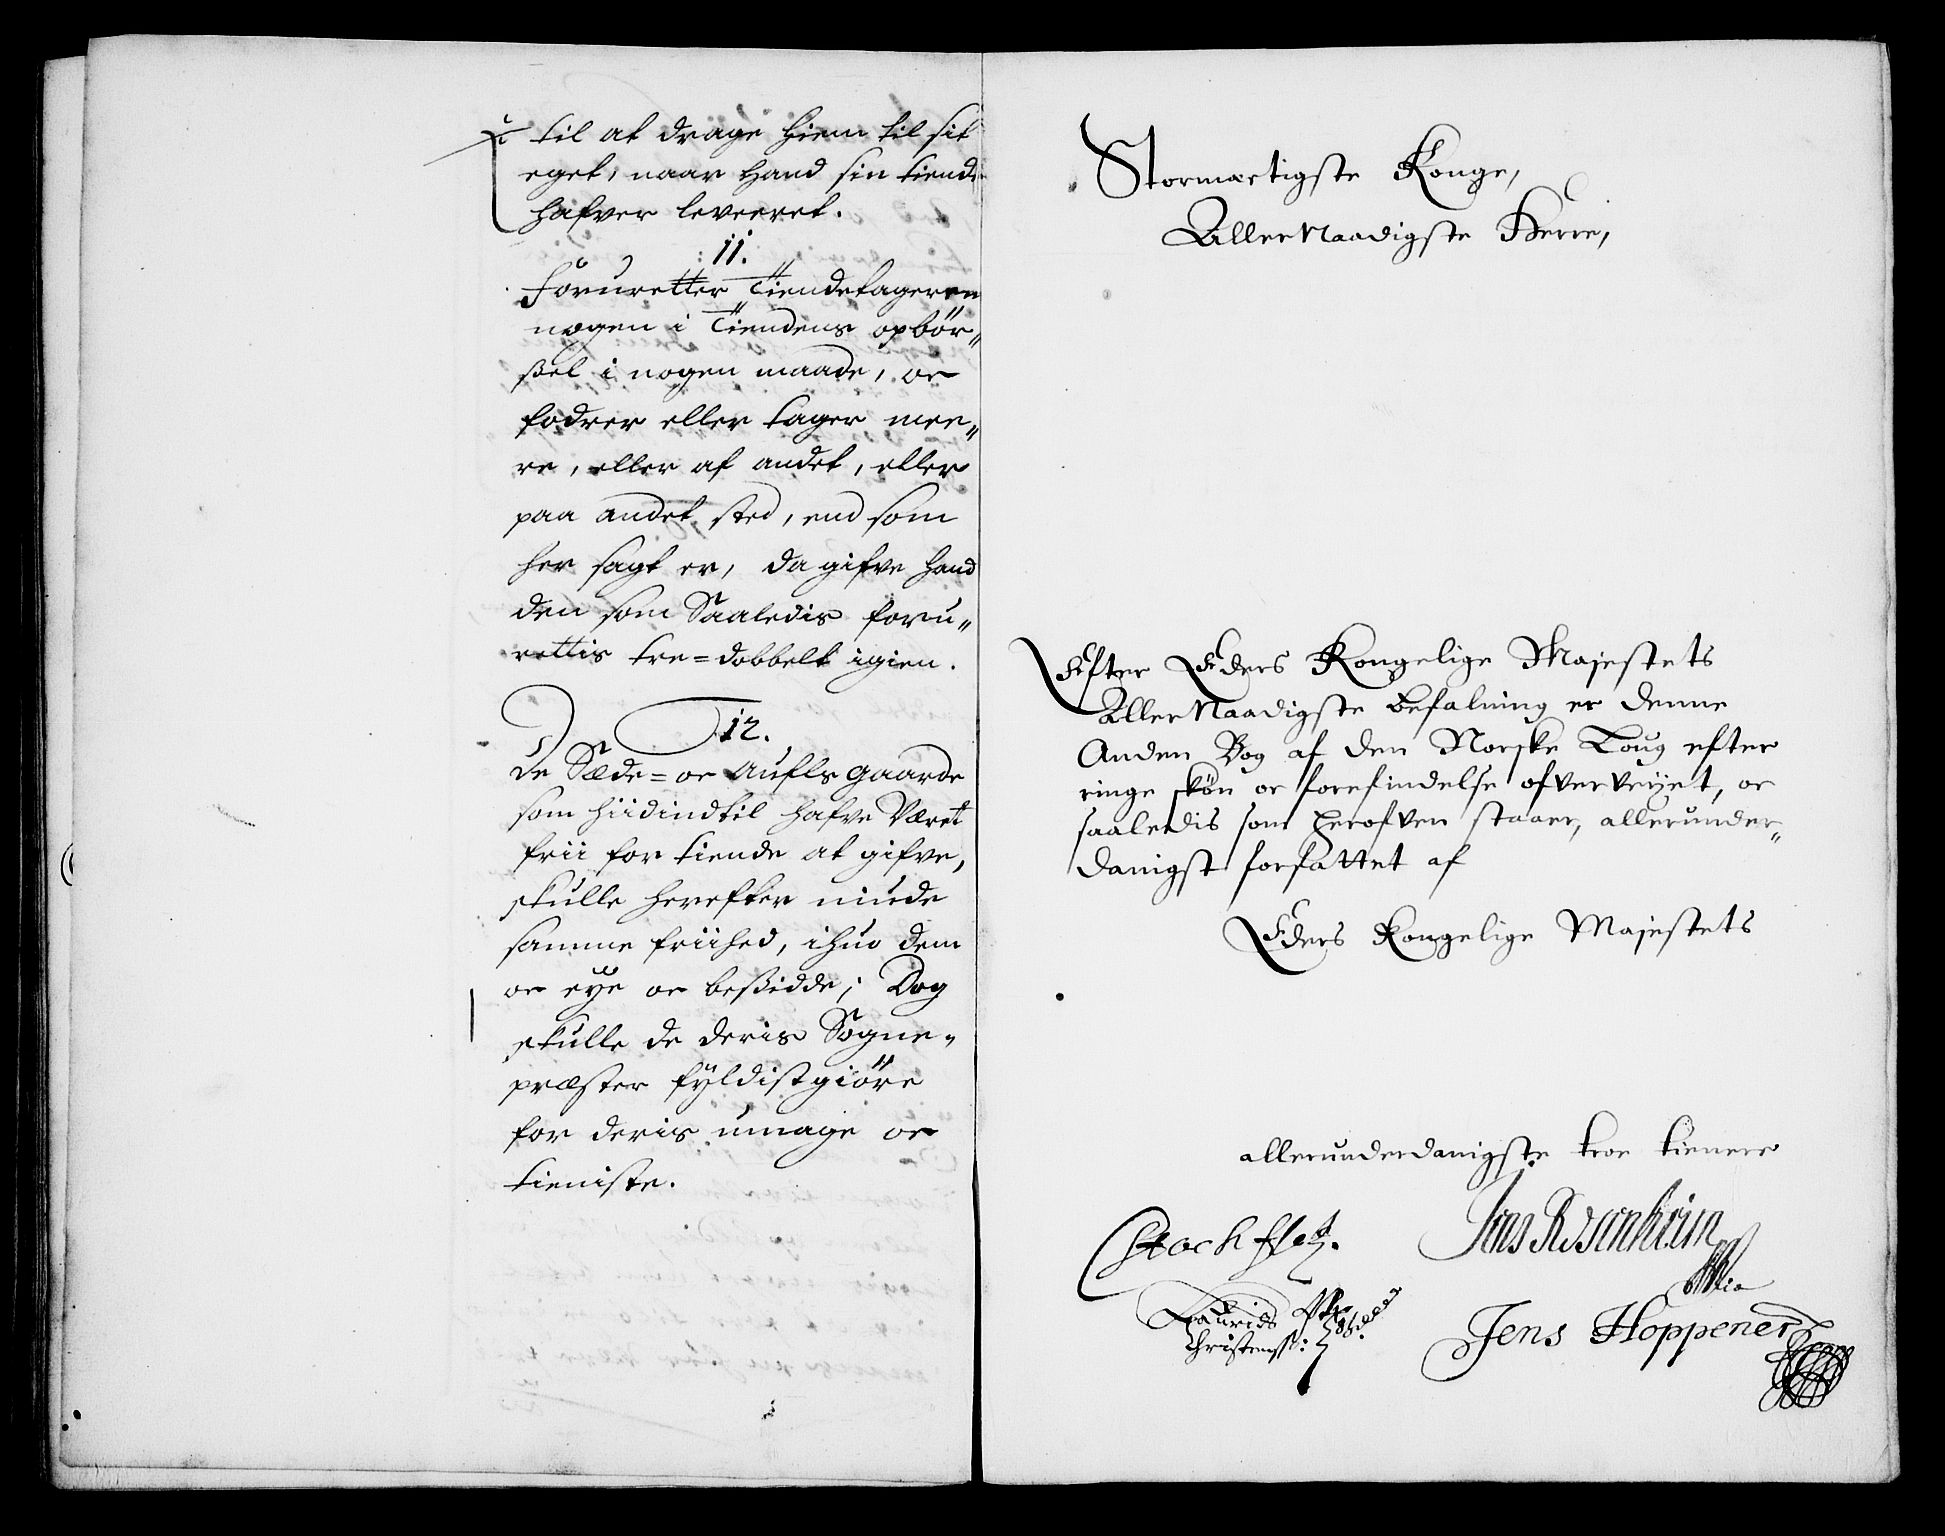 til at drage hiem til sit
eget, naar hand sin tiende
hafver leveeret.
11.
Foruretter Tiendetageren
nogen i Tiendens opbör„
ßel i nogen maade, oc
fodrer eller tager mee„
re, eller af andet, eller
paa andet sted, end som
her sagt er, da gifve hand
den som Saaledis foru„
rettis tre=dobbelt igien.
12.
De Sæde= oc Aufls gaarde
som hiidindtil hafve Været
frii for tiende at gifve,
skulle herefter niude
samme friihed, ihuo dem
oc eÿe oc beßidde; Dog
skulle de deris Sogne-
præster fyldistgiöre
for deris umage oc
tieniste.
Stormectigste Konge,
AllerNaadigste Herre,
Efter Eders Kongelige Majestets
AllerNaadigste befalning er denne
Anden Bog af den Norske Loug efter
ringe skön oc forefindelse ofverveÿet, oc
saaledis som herofven staaer, allerunder„
danigst forfattet af
Eders Kongelige Majestets
allerunderdanigste troe tienere
Stockfleth.
Jens Rosenheim
Laurids
Christenss:
Jens Hoppener